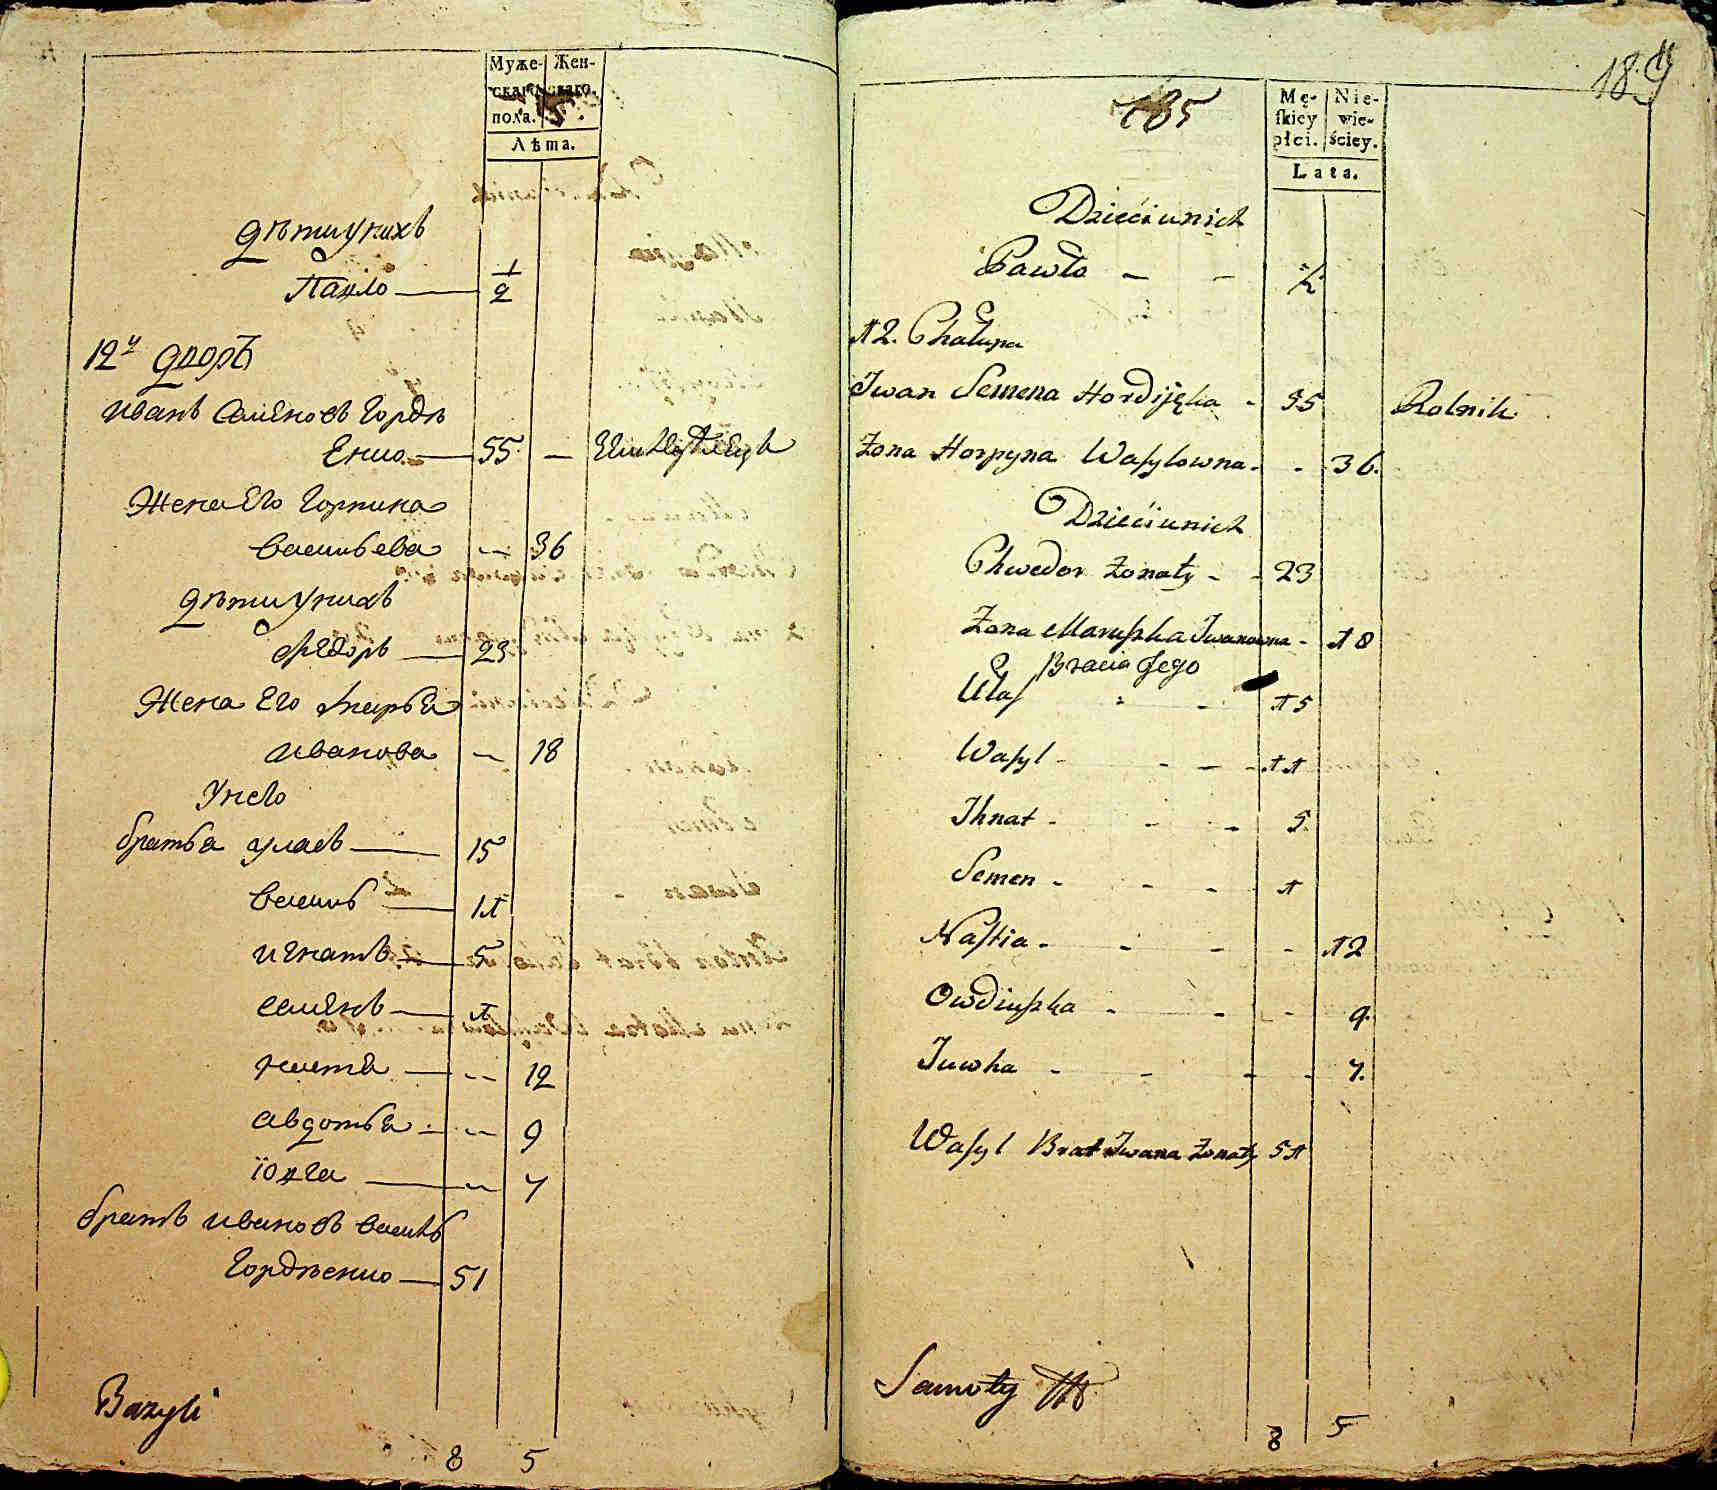 Муже-
скаго
пола.
Жен-
скаго.
Лѣта.
дѣти у нихъ
Павло — 1/2
12й дворъ
иванъ Семеновъ Гордѣ
Енко — 55 —
Жена Его Горпина
васильева — 36
дѣти у нихъ
Федоръ — 23
Жена Его Марья
иванова — 18
У него
братья уласъ — 15
василь — 11
игнатъ — 5
семенъ — 1
настя — 12
авдотья — 9
їовга — 7
братъ ивановъ василь
Гордѣенко — 51
Bazyli
8 5
189
185
Mę-
ſkiey
płci.
Nie-
wie-
ściey.
Lata.
Dzieći u nich
Pawło - - ½
12. Chałupa
Jwan Semena Hordijęka - 55 Rolnik
Żona Horpyna Waſylowna - - 36.
Dzieći u nich
Chwedor żonaty - - 23
Żona Maruſzka Jwanowna - 18
Bracia Jego
Ułaſ - - 15
Waſyl - - - 11
Jhnat - - - 5.
Semen - - - 1
Naſtia - - - - 12
Owdiuſzka - - - 9.
Juwha - - - - 7.
Waſyl Brat Jwana żonaty 51
Samoty
8 5